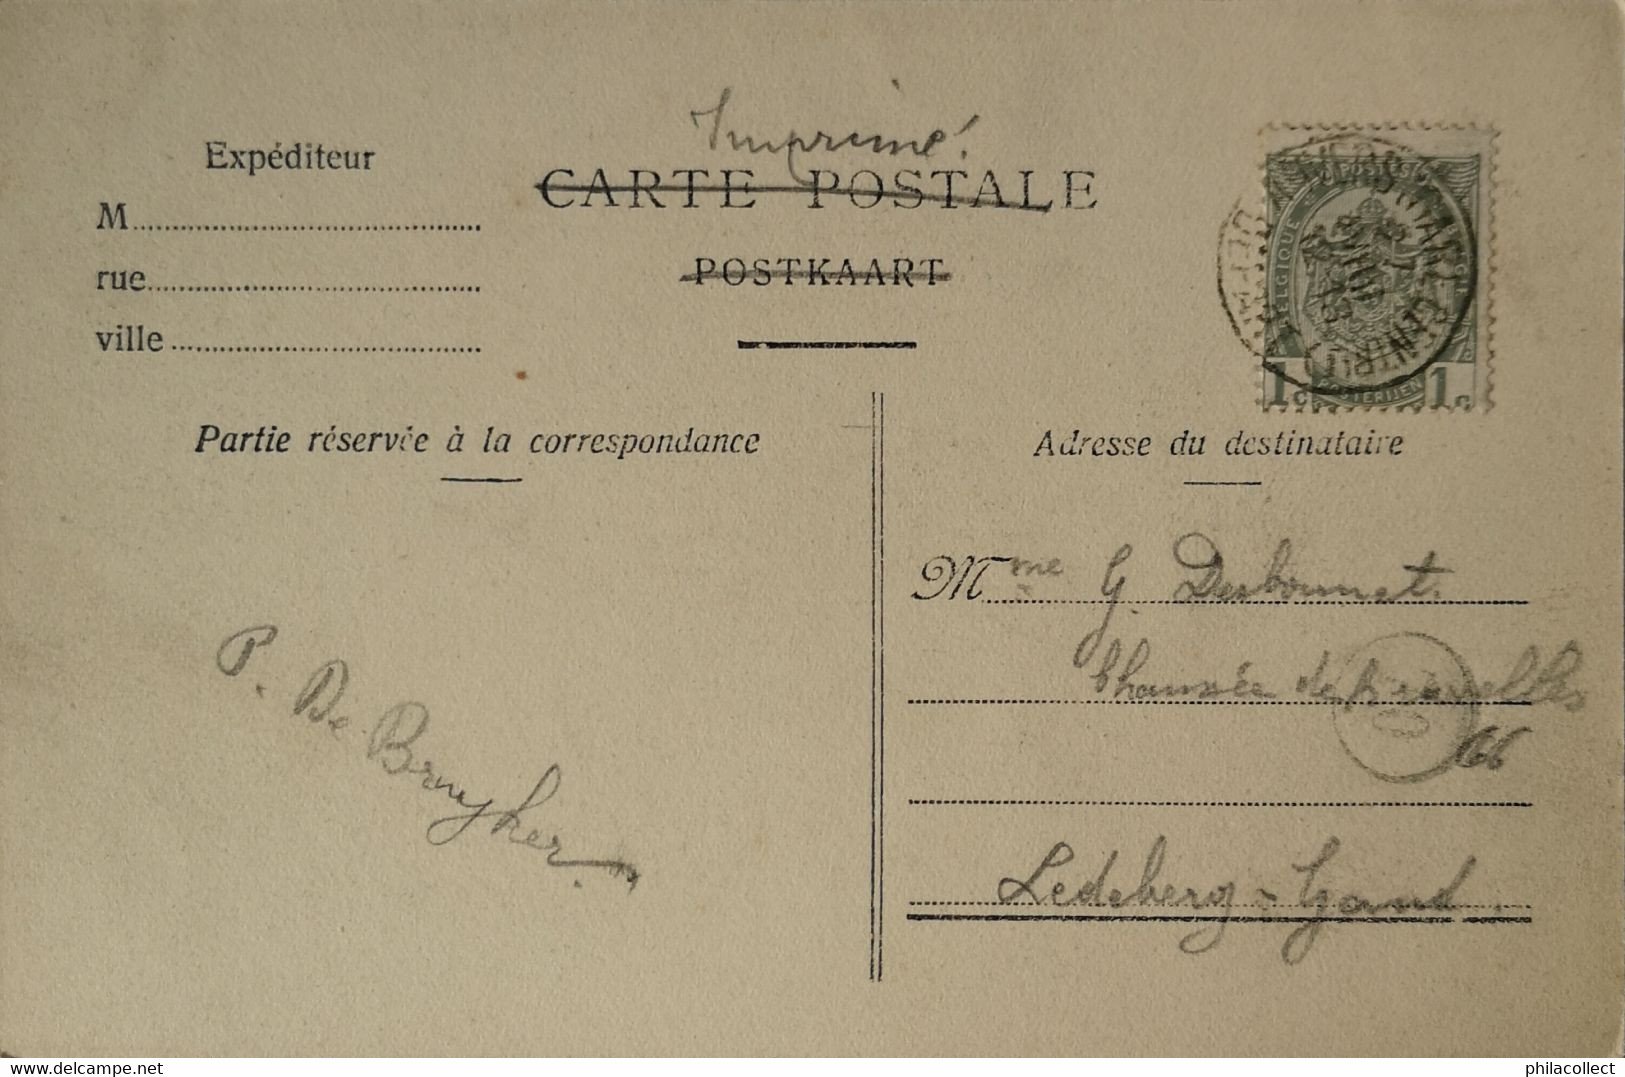 Imprimé!
Expéditeur
CARTE POSTALE
M
POSTKAART
rue
ville
BELGIQUE
POSTERIJEN
1c 1c
Partie réservée à la correspondance
Adresse du destinataire
Mme G. Desbonnet.
Chaussée de Bruxelles
66
P. De Bruyker.
Ledeberg - Gand.
www.delcampe.net
philacollect